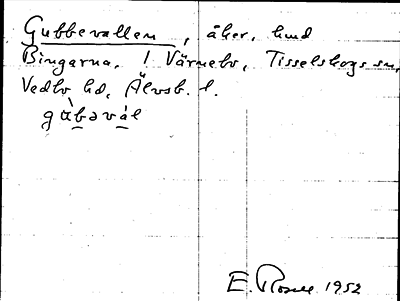 Gubbevallen, åker, hmd
Bingarna, 1 Värnebo, Tisselskogs sn,
Vedbo hd, Älvsb. l.
gubəvàl
E. Rosell 1952